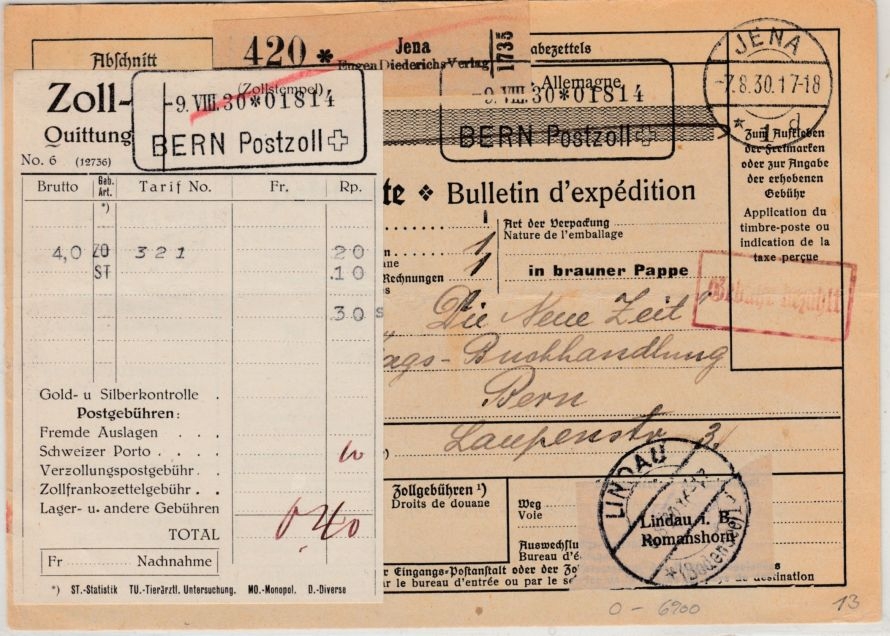 Abschnitt
420 * Jena
Eugen Diederichs Verlag
1735
abezettels
JENA
-7.8.30.17-18
* 1 d
Zoll-
(Zollstempel)
-9.VIII.30*01814
BERN Postzoll
Allemagne
-9.VIII.30*01814
BERN Postzoll
Quittung
No. 6 (12736)
Zum Aufkleben
der Freimarken
oder zur Angabe
der erhobenen
Gebühr
Application du
timbre-poste ou
indication de la
taxe perçue
te ❖ Bulletin d'expédition
Brutto Geb. Art. Tarif No. Fr. Rp.
*)
4,0 ZO 321 20
ST .10
30 s
1
1
Rechnungen
Art der Verpackung
Nature de l'emballage
in brauner Pappe
Gebühr bezahlt
"Die Neue Zeit"
ags-Buchhandlung
Bern
Laupenstr. 3.
Gold- u Silberkontrolle .
Postgebühren:
Fremde Auslagen . . .
Schweizer Porto . . .
Verzollungspostgebühr .
Zollfrankozettelgebühr . .
Lager- u. andere Gebühren
TOTAL
0.40
Fr Nachnahme
*) ST.-Statistik TU.-Tierärztl. Untersuchung. MO.-Monopol. D.-Diverse
Zollgebühren ¹)
Droits de douane
Weg
Voie
Lindau i. B.
Romanshorn
LINDAU
* (Bodensee)
Auswechslu
Bureau d'é
r Eingangs-Postanstalt oder der Zo
r le bureau d'entrée ou par le se
de destination
0-6900
13